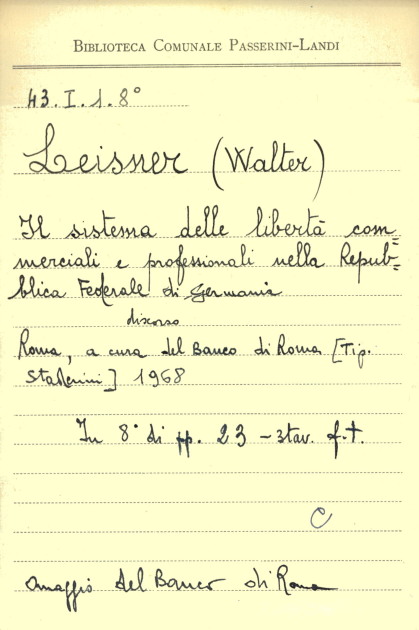 BIBLIOTECA COMUNALE PASSERINI-LANDI
43.I.1.8°
Leisner (Walter)
Il sistema delle libertà com=
merciali e professionali nella Repub=
blica Federale di Germania
discorso
Roma, a cura del Banco di Roma [Tip.
Staderini] 1968
In 8° di pp. 23 - 3tav. f.t.
C
Omaggio del Banco di Roma